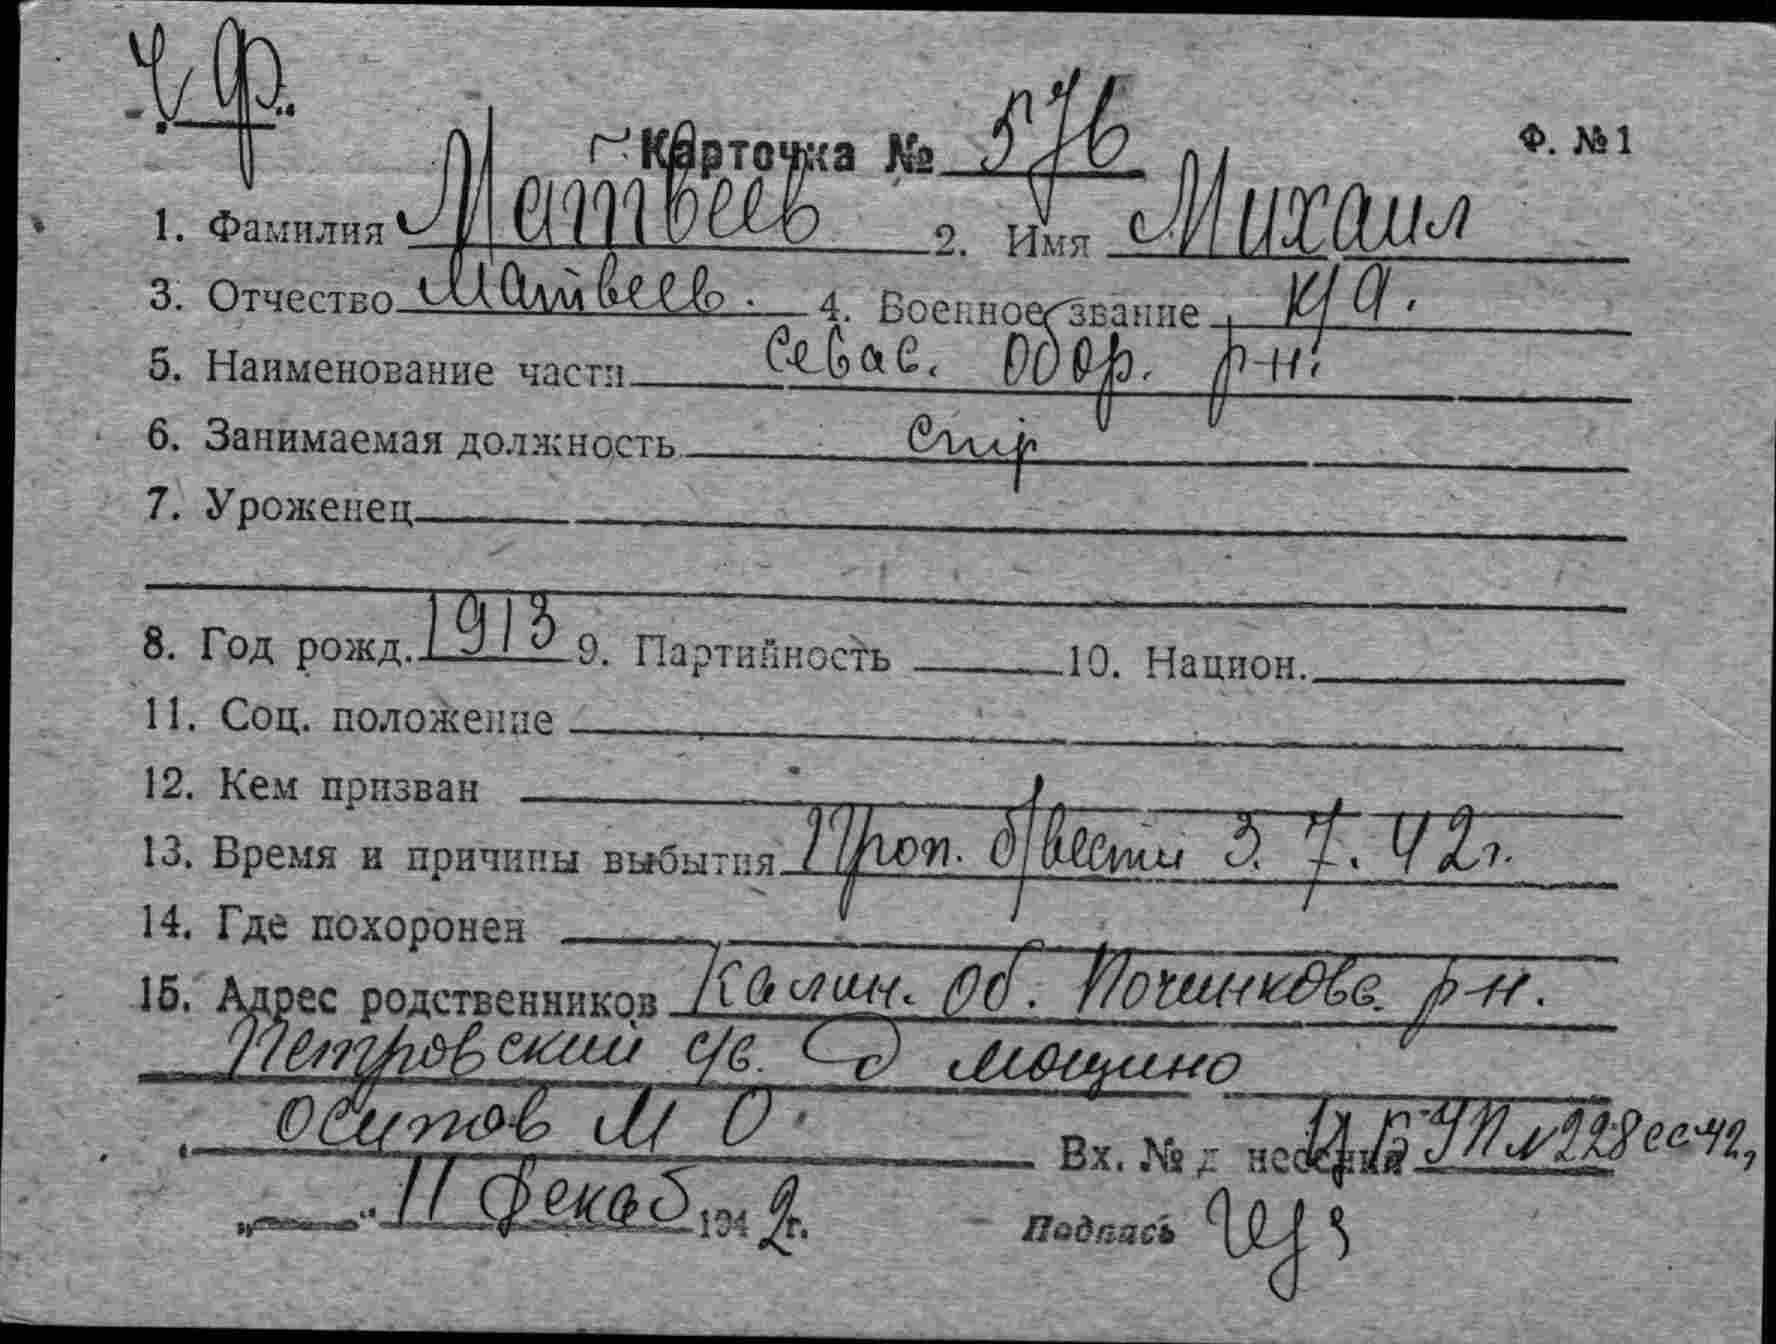 Ч Ф.
Карточка № 576
Ф. №1
1. Фамилия Матвеев 2. Имя Михаил
3. Отчество Матвеев. 4. Военное звание к/а.
5. Наименование части Севас. Обор. р-н.
6. Занимаемая должность стр
7. Уроженец
8. Год рожд. 1913 9. Партийность 10. Национ.
11. Соц. положение
12. Кем призван
13. Время и причины выбытия Проп. б/вести 3. 7. 42г.
14. Где похоронен
15. Адрес родственников Калин. об. Починковс. р-н.
Петровский с/с. д мощино
Осипов М О
Вх. № донесения УП №228сс42,
„ “ 11 декаб 1942г. Подпись